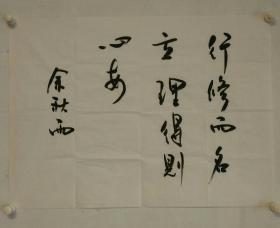 行修而名
立理得则
心安
余秋雨